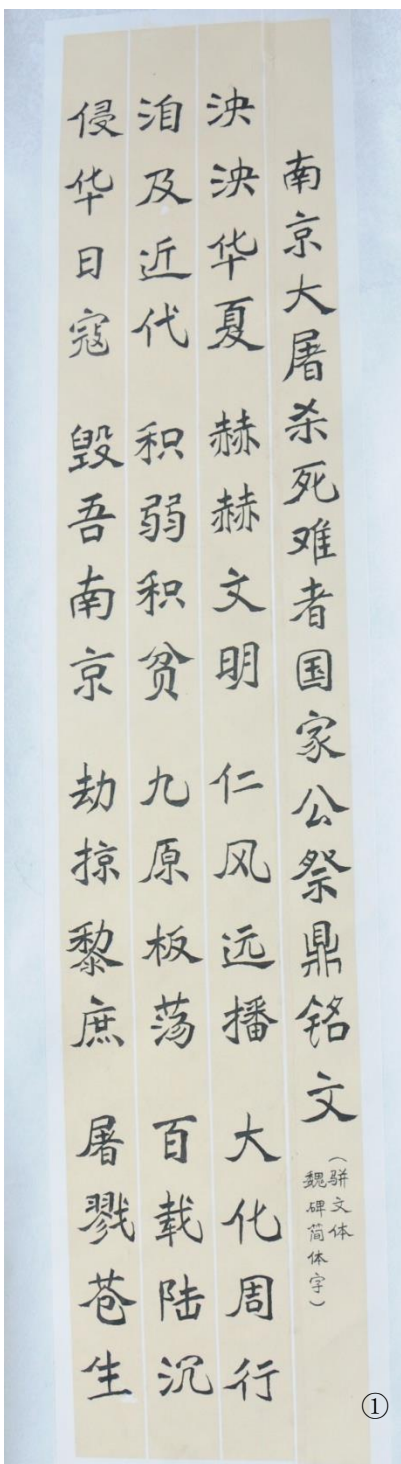 南京大屠杀死难者国家公祭鼎铭文
（骈文体
魏碑简体字）
泱泱华夏 赫赫文明 仁风远播 大化周行
洎及近代 积弱积贫 九原板荡 百载陆沉
侵华日寇 毁吾南京 劫掠黎庶 屠戮苍生
①